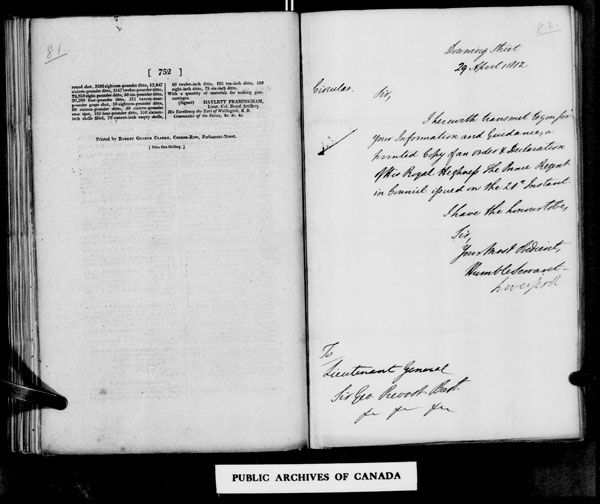 81.
[ 752 ]
round shot, 2300 eighteen-pounder ditto, 12,847
sixteen-pounder ditto, 2147 twelve-pounder ditto,
72,858 eight-pounder ditto, 50 six-pounder ditto,
20,200 four-pounder ditto, 551 twenty-four-
pounder grape shot, 10 eighteen-pounder ditto,
80 sixteen-pounder ditto, 30 sixteen-pounder
case shot, 163 four-pounder ditto, 156 sixteen-
inch shells filled, 70 sixteen-inch empty shells,
60 twelve-inch ditto, 105 ten-inch ditto, 100
eight-inch ditto, 75 six-inch ditto.
With a quantity of materials for making gun-
carriages.
(Signed) HAYLETT FRAMINGHAM,
Lieut. Col. Royal Artillery.
His Excellency the Earl of Wellington, K. B.
Commander of the Forces, &c. &c. &c.
Printed by ROBERT GEORGE CLARKE, Cannon-Row, Parliament-Street.
[ Price One Shilling. ]
82.
Downing Street
29 April 1812
Circular.
Sir,
I herewith transmit to you for
your Information and Guidance, a
printed Copy of an order & Declaration
of His Royal Highness The Prince Regent
in Council issued on the 21st Instant
I have the honour to be,
Sir,
Your Most Obedient,
Humble Servant
Liverpool
To
Lieutenant General
Sir Geo Prevost Bart
&c &c &c
PUBLIC ARCHIVES OF CANADA